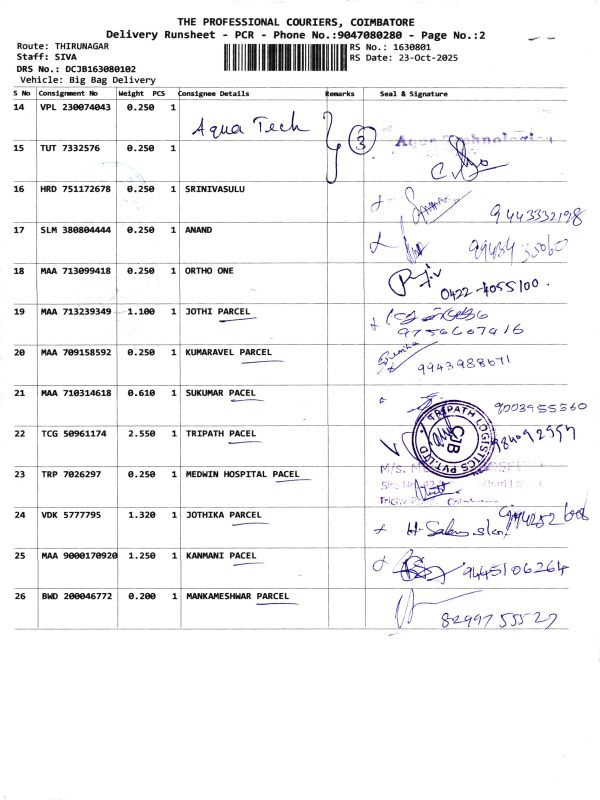 THE PROFESSIONAL COURIERS, COIMBATORE
Delivery Runsheet - PCR - Phone No.:9047080280 - Page No.:2
Route: THIRUNAGAR RS No.: 1630801
Staff: SIVA RS Date: 23-Oct-2025
DRS No.: DCJB163080102
Vehicle: Big Bag Delivery
S No Consignment No Weight PCS Consignee Details Remarks Seal & Signature
14 VPL 230074043 0.250 1
Aqua Tech 3 Aqua Technologies
15 TUT 7332576 0.250 1
16 HRD 751172678 0.250 1 SRINIVASULU
9443332198
17 SLM 380804444 0.250 1 ANAND
18 MAA 713099418 0.250 1 ORTHO ONE
0422-4055100.
19 MAA 713239349 1.100 1 JOTHI PARCEL
9756607416
20 MAA 709158592 0.250 1 KUMARAVEL PARCEL
9943988671
21 MAA 710314618 0.610 1 SUKUMAR PACEL
9003955560
22 TCG 50961174 2.550 1 TRIPATH PACEL
TRIPATH LOGISTICS PVT. LTD
CJB
23 TRP 7026297 0.250 1 MEDWIN HOSPITAL PACEL
M/s.
24 VDK 5777795 1.320 1 JOTHIKA PARCEL
25 MAA 9000170920 1.250 1 KANMANI PACEL
9445106264
26 BWD 200046772 0.200 1 MANKAMESHWAR PARCEL
8299755527